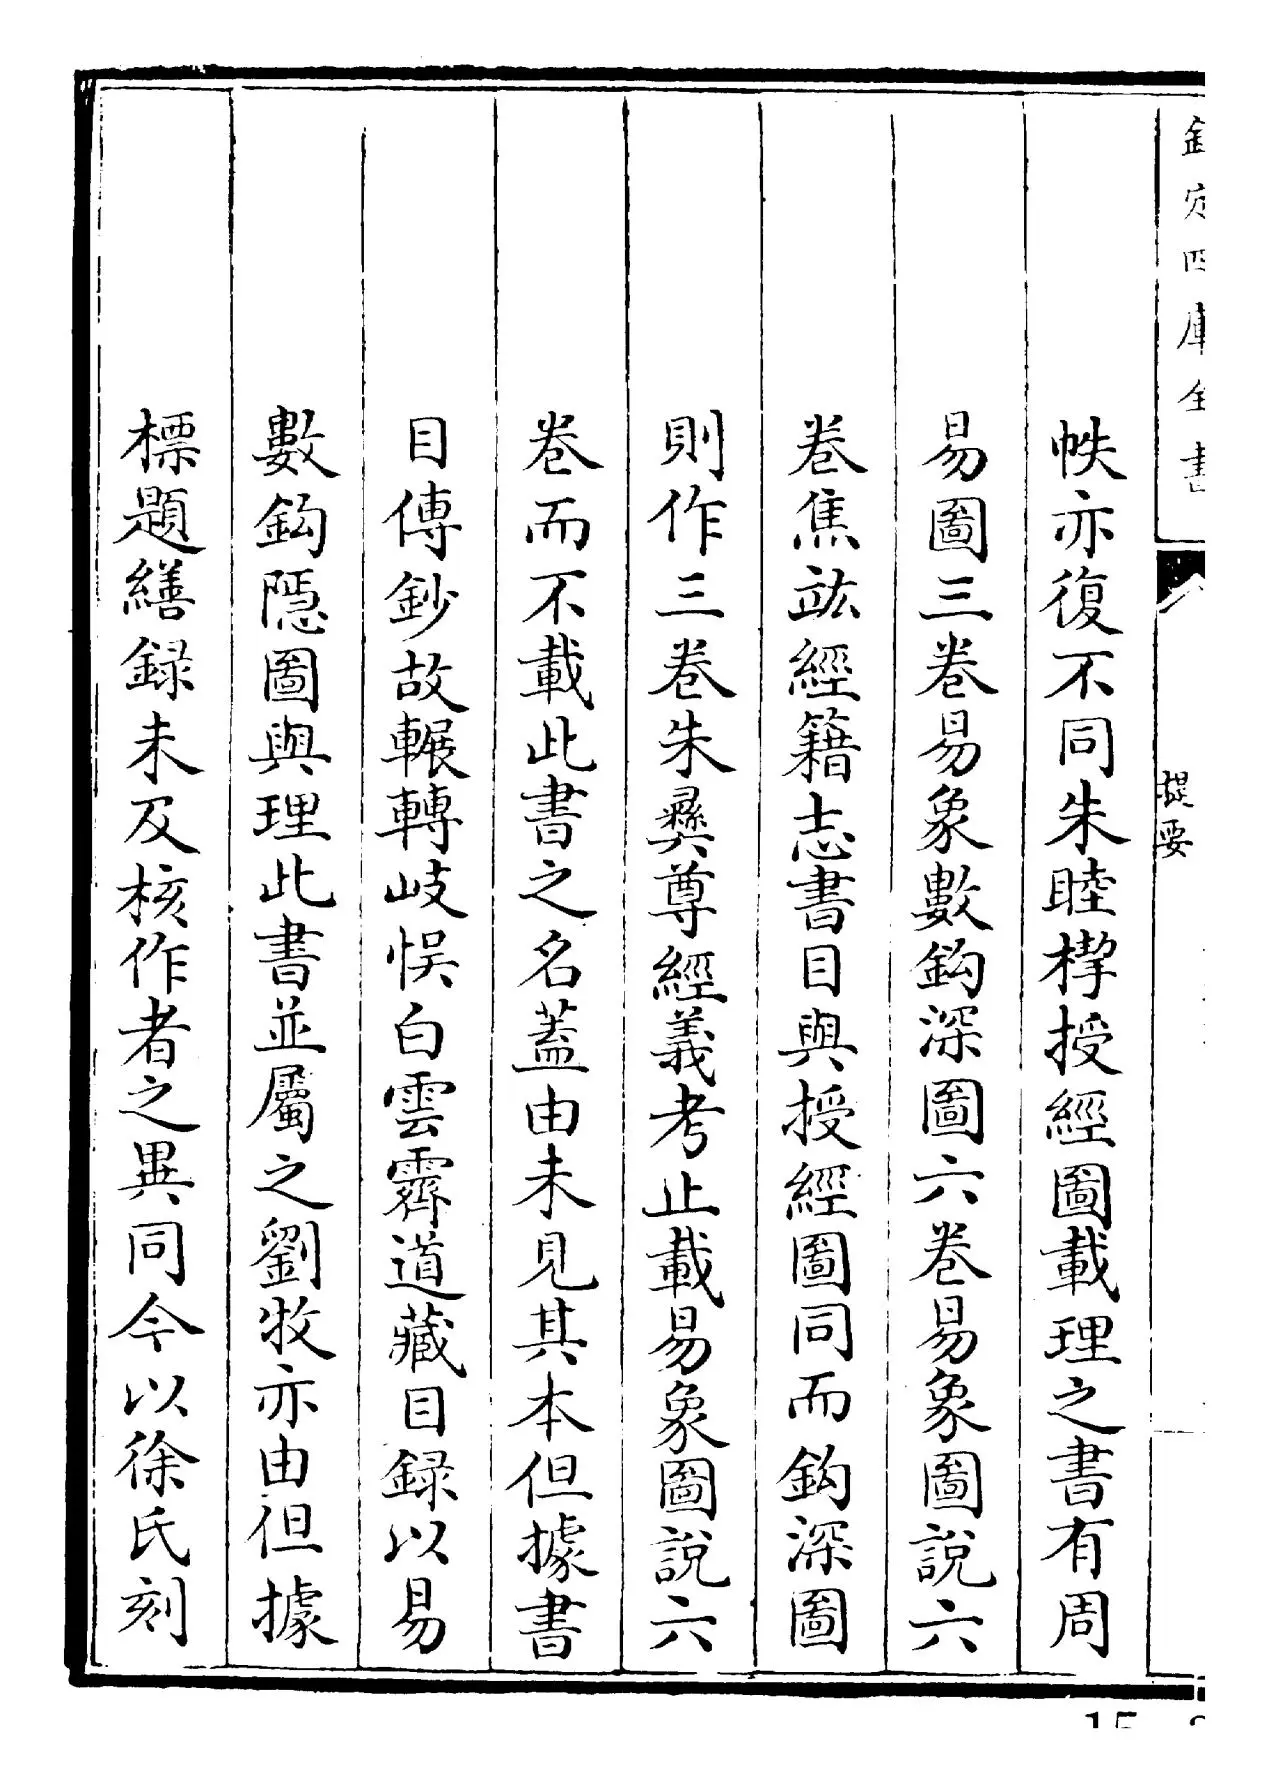 欽定四庫全書
提要
帙亦復不同朱睦㮮授經圖載理之書有周
易圖三卷易象數鈎深圖六卷易象圖說六
卷焦竑經籍志書目與授經圖同而鈎深圖
則作三卷朱彞尊經義考止載易象圖說六
卷而不載此書之名蓋由未見其本但據書
目傳鈔故輾轉歧悞白雲霽道藏目録以易
數鈎隱圖與理此書並屬之劉牧亦由但據
標題繕録未及核作者之異同今以徐氏刻